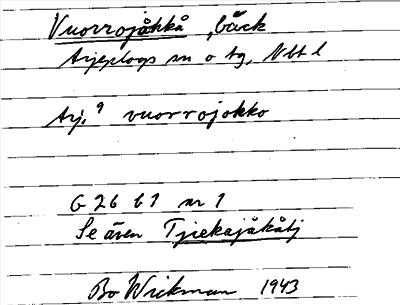 Vuorrojåhkå, bäck
Arjeplogs sn o tg, Vbt l
Arj. 9 vuorrojokko
G 26 C 1 nr 1
Se även Tjiekajåkåtj
Bo Wickman 1943